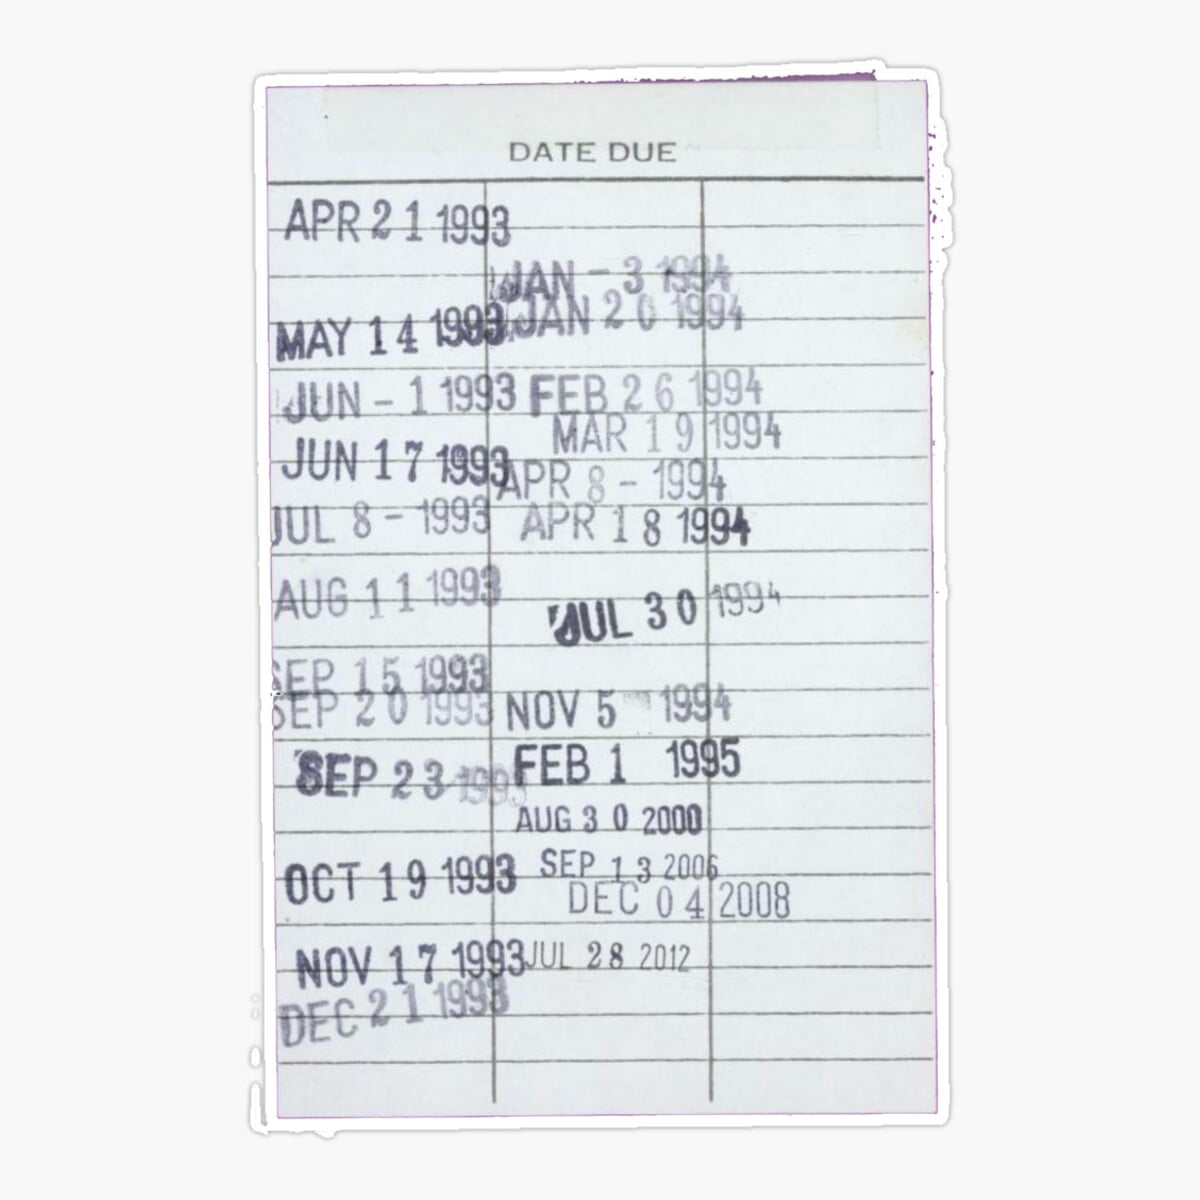 DATE DUE
APR 21 1993
MAY 14 1993
JUN - 1 1993
JUN 17 1993
JUL 8 - 1993
AUG 11 1993
SEP 15 1993
SEP 20 1993
SEP 23 1993
OCT 19 1993
NOV 17 1993
DEC 21 1993
JAN - 3 1994
JAN 20 1994
FEB 26 1994
MAR 19 1994
APR 8 - 1994
APR 18 1994
JUL 30 1994
NOV 5 1994
FEB 1 1995
AUG 30 2000
SEP 13 2006
DEC 04 2008
JUL 28 2012